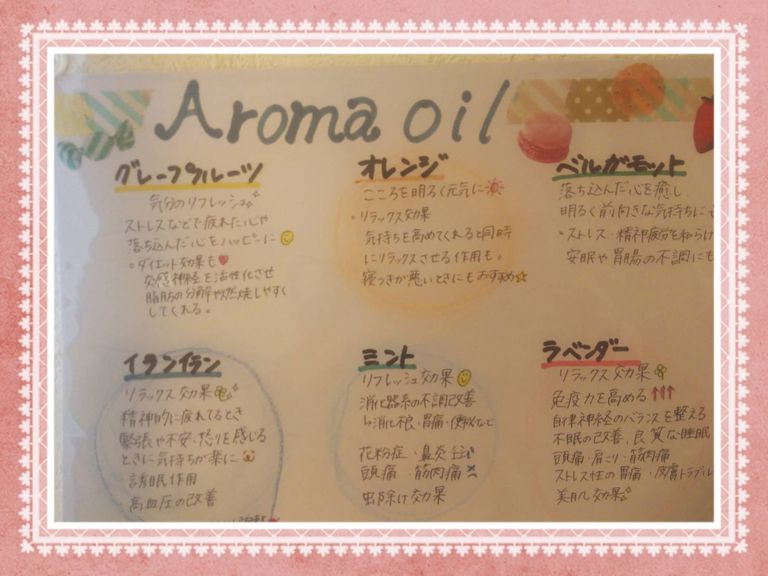 Aroma oil
グレープフルーツ
気分のリフレッシュ
ストレスなどで疲れた心や
落ち込んだ心をハッピーに
・ダイエット効果も
交感神経を活性化させ
脂肪の分解や燃焼しやすく
してくれる。
オレンジ
こころを明るく元気に
・リラックス効果
気持ちを高めてくれると同時
にリラックスさせる作用も。
寝つきが悪いときにもおすすめ
ベルガモット
落ち込んだ心を癒し
明るく前向きな気持ちに
・ストレス・精神疲労を和らげ
安眠や胃腸の不調にも
イランイラン
リラックス効果
精神的に疲れてるとき
緊張や不安・怒りを感じる
ときに気持ちが楽に
・誘眠作用
・高血圧の改善
ミント
リフレッシュ効果
消化器系の不調改善
↳消化不良・胃痛・便秘など
花粉症・鼻炎
頭痛・筋肉痛
虫除け効果
ラベンダー
リラックス効果
免疫力を高める↑↑↑
自律神経のバランスを整える
不眠の改善、良質な睡眠
頭痛・肩こり・筋肉痛
ストレス性の胃痛・皮膚トラブル
美肌効果